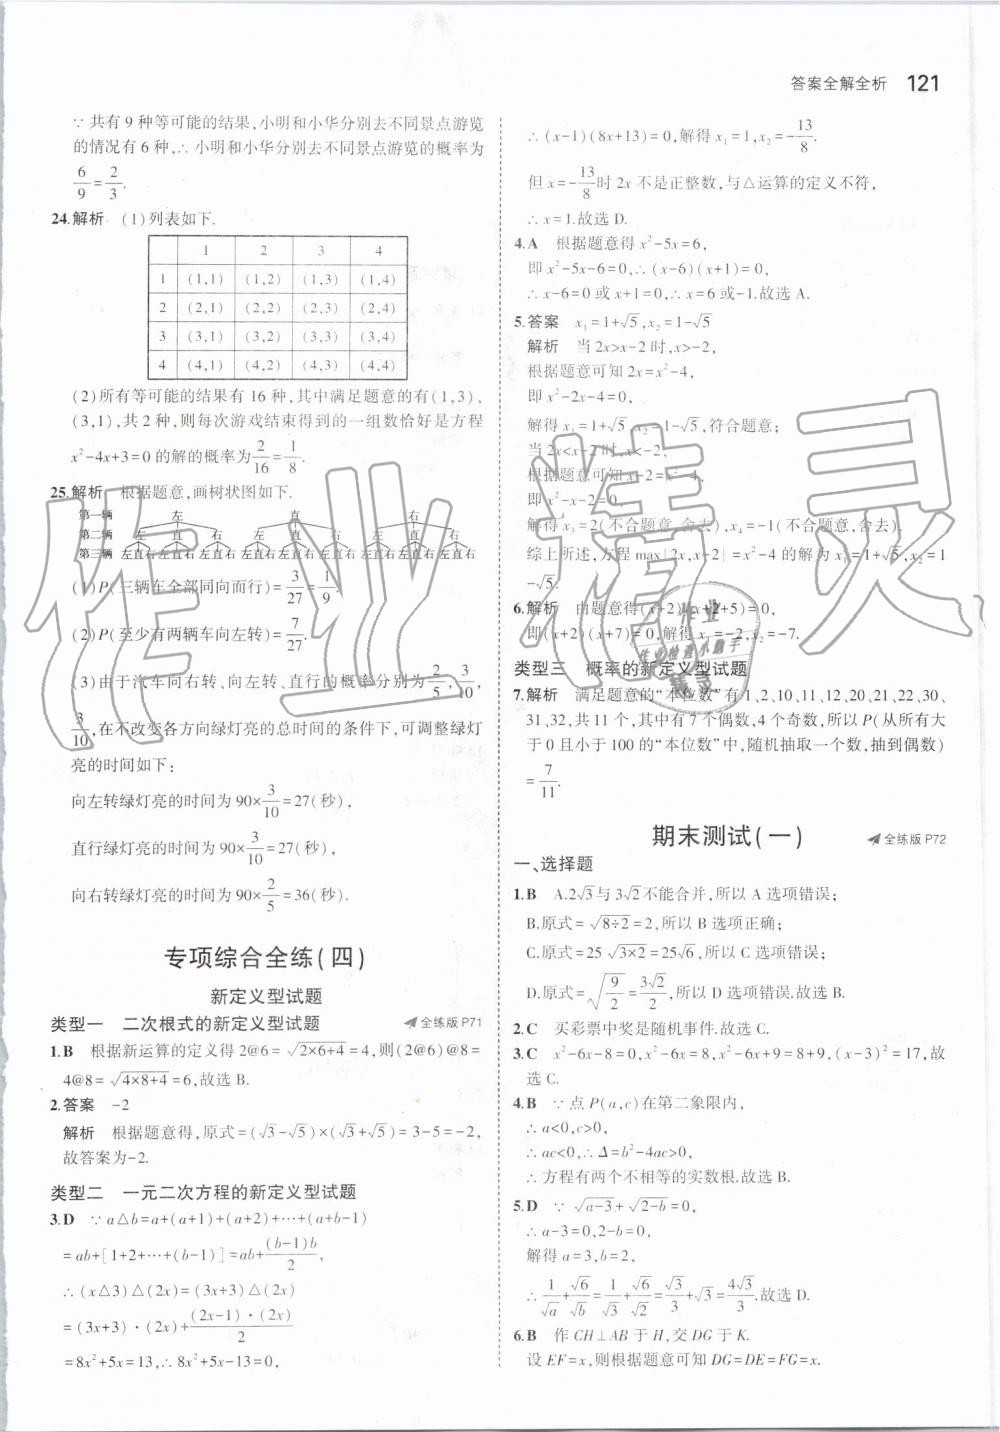 答案全解全析 121
∵共有9种等可能的结果,小明和小华分别去不同景点游览
的情况有6种,∴小明和小华分别去不同景点游览的概率为
6/9=2/3.
24.解析 (1)列表如下.
1 2 3 4
1 (1,1) (1,2) (1,3) (1,4)
2 (2,1) (2,2) (2,3) (2,4)
3 (3,1) (3,2) (3,3) (3,4)
4 (4,1) (4,2) (4,3) (4,4)
(2)所有等可能的结果有16种,其中满足题意的有(1,3),
(3,1),共2种,则每次游戏结束得到的一组数恰好是方程
x²-4x+3=0的解的概率为2/16=1/8.
25.解析 根据题意,画树状图如下.
第一辆 左 直 右
第二辆 左 直 右 左 直 右 左 直 右
第三辆 左直右 左直右 左直右 左直右 左直右 左直右 左直右 左直右 左直右
(1)P(三辆车全部同向而行)=3/27=1/9.
(2)P(至少有两辆车向左转)=7/27.
(3)由于汽车向右转、向左转、直行的概率分别为2/5,3/10,
3/10,在不改变各方向绿灯亮的总时间的条件下,可调整绿灯
亮的时间如下:
向左转绿灯亮的时间为90×3/10=27(秒),
直行绿灯亮的时间为90×3/10=27(秒),
向右转绿灯亮的时间为90×2/5=36(秒).
专项综合全练(四)
新定义型试题
类型一 二次根式的新定义型试题 全练版P71
1.B 根据新运算的定义得2@6=√(2×6+4)=4,则(2@6)@8=
4@8=√(4×8+4)=6,故选B.
2.答案 -2
解析 根据题意得,原式=(√3-√5)×(√3+√5)=3-5=-2,
故答案为-2.
类型二 一元二次方程的新定义型试题
3.D ∵a△b=a+(a+1)+(a+2)+⋯+(a+b-1)
=ab+[1+2+⋯+(b-1)]=ab+(b-1)b/2,
∴(x△3)△(2x)=(3x+3)△(2x)
=(3x+3)·(2x)+(2x-1)·(2x)/2
=8x²+5x=13,∴8x²+5x-13=0,
∴(x-1)(8x+13)=0,解得x₁=1,x₂=-13/8.
但x=-13/8时2x不是正整数,与△运算的定义不符,
∴x=1.故选D.
4.A 根据题意得x²-5x=6,
即x²-5x-6=0,∴(x-6)(x+1)=0,
∴x-6=0或x+1=0,∴x=6或-1.故选A.
5.答案 x₁=1+√5,x₂=1-√5
解析 当2x>x-2时,x>-2,
根据题意可知2x=x²-4,
即x²-2x-4=0,
解得x₁=1+√5,x₂=1-√5,符合题意;
当2x<x-2时,x<-2,
根据题意可知x-2=x²-4,
即x²-x-2=0,
解得x₃=2(不合题意,舍去),x₄=-1(不合题意,舍去).
综上所述,方程max|2x,x-2|=x²-4的解为x₁=1+√5,x₂=1
-√5.
6.解析 由题意得(x+2)(x+2+5)=0,
即(x+2)(x+7)=0,解得x₁=-2,x₂=-7.
类型三 概率的新定义型试题
7.解析 满足题意的“本位数”有1、2、10、11、12、20、21、22、30、
31、32,共11个,其中有7个偶数,4个奇数,所以P(从所有大
于0且小于100的“本位数”中,随机抽取一个数,抽到偶数)
=7/11.
期末测试(一) 全练版P72
一、选择题
1.B A.2√3与3√2不能合并,所以A选项错误;
B.原式=√(8÷2)=2,所以B选项正确;
C.原式=25√(3×2)=25√6,所以C选项错误;
D.原式=√(9/2)=3√2/2,所以D选项错误.故选B.
2.C 买彩票中奖是随机事件.故选C.
3.C x²-6x-8=0,x²-6x=8,x²-6x+9=8+9,(x-3)²=17,故
选C.
4.B ∵点P(a,c)在第二象限内,
∴a<0,c>0,
∴ac<0,∴Δ=b²-4ac>0,
∴方程有两个不相等的实数根.故选B.
5.D ∵√(a-3)+√(2-b)=0,
∴a-3=0,2-b=0,
解得a=3,b=2,
∴1/√a+√6/√b=1/√3+√6/√2=√3/3+√3=4√3/3.故选D.
6.B 作CH⊥AB于H,交DG于K.
设EF=x,则根据题意可知DG=DE=FG=x.
作业精灵
作业
作业检查小助手
精灵